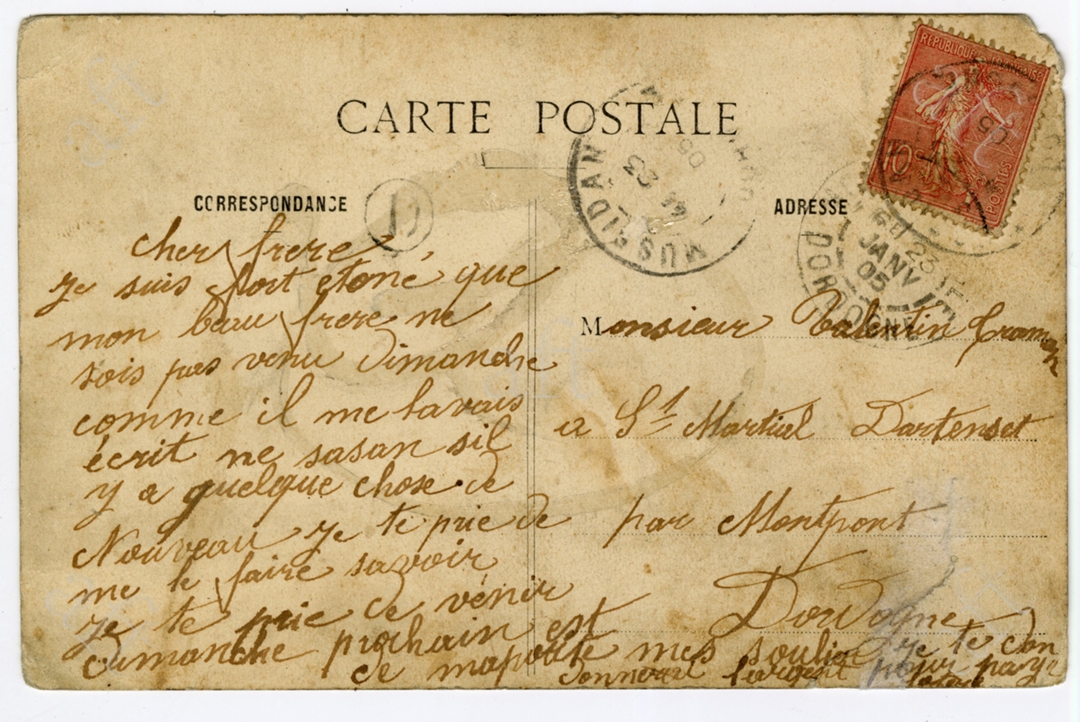 CARTE POSTALE
CORRESPONDANCE
ADRESSE
RÉPUBLIQUE FRANÇAISE
10
POSTES
MUSSIDAN
23
05
DORDOGNE
23
JANV
05
cher frere
je suis fort etoné que
mon beau frere ne
sois pas venu Dimanche
comme il me lavais
écrit ne sasan sil
y a quelque chose de
Nouveau je te prie de
me le faire savoir
je te prie de vénir
dimanche prochain est
de maporté mes soulier je te don
donnerai largent pour paye
Monsieur Valentin
a St Martial Dartenset
par Montpont
Dordogne